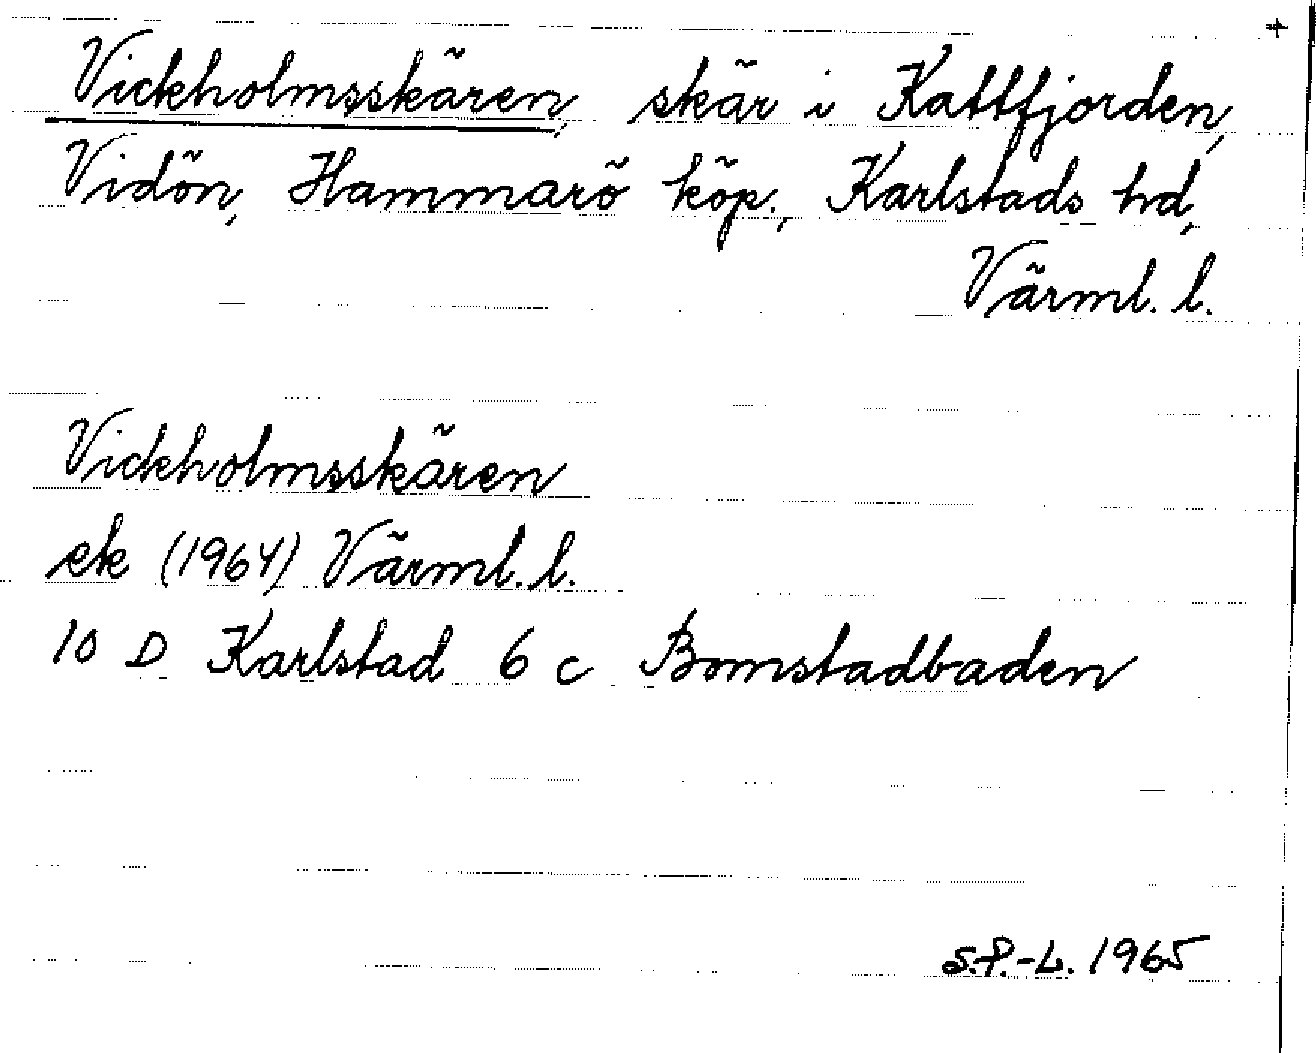 +
Vickholmsskären, skär i Kattfjorden,
Vidön, Hammarö köp., Karlstads hd,
Värml. l.
Vickholmsskären
ek (1964) Värml. l.
10 D Karlstad 6 c Bomstadbaden
S.P.-L. 1965